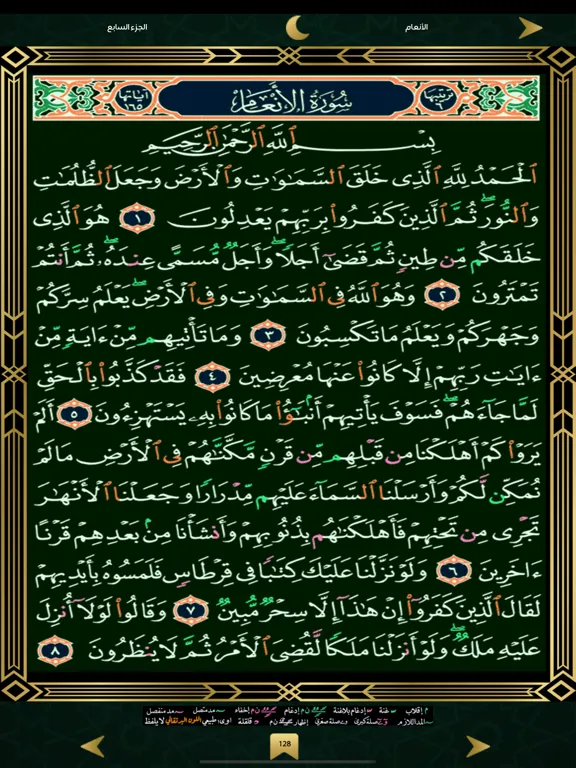 الأنعام
الجزء السابع
ترتيبها ٦ سُورَةُ الأَنْعَامِ آياتها ١٦٥
بِسْمِ ٱللَّهِ ٱلرَّحْمَٰنِ ٱلرَّحِيمِ
ٱلْحَمْدُ لِلَّهِ ٱلَّذِى خَلَقَ ٱلسَّمَٰوَٰتِ وَٱلْأَرْضَ وَجَعَلَ ٱلظُّلُمَٰتِ
وَٱلنُّورَ ۖ ثُمَّ ٱلَّذِينَ كَفَرُوا۟ بِرَبِّهِمْ يَعْدِلُونَ ١ هُوَ ٱلَّذِى
خَلَقَكُم مِّن طِينٍ ثُمَّ قَضَىٰٓ أَجَلًا ۖ وَأَجَلٌ مُّسَمًّى عِندَهُۥ ۖ ثُمَّ أَنتُمْ
تَمْتَرُونَ ٢ وَهُوَ ٱللَّهُ فِى ٱلسَّمَٰوَٰتِ وَفِى ٱلْأَرْضِ ۖ يَعْلَمُ سِرَّكُمْ
وَجَهْرَكُمْ وَيَعْلَمُ مَا تَكْسِبُونَ ٣ وَمَا تَأْتِيهِم مِّنْ ءَايَةٍ مِّنْ
ءَايَٰتِ رَبِّهِمْ إِلَّا كَانُوا۟ عَنْهَا مُعْرِضِينَ ٤ فَقَدْ كَذَّبُوا۟ بِٱلْحَقِّ
لَمَّا جَآءَهُمْ ۖ فَسَوْفَ يَأْتِيهِمْ أَنۢبَٰٓؤُا۟ مَا كَانُوا۟ بِهِۦ يَسْتَهْزِءُونَ ٥ أَلَمْ
يَرَوْا۟ كَمْ أَهْلَكْنَا مِن قَبْلِهِم مِّن قَرْنٍ مَّكَّنَّٰهُمْ فِى ٱلْأَرْضِ مَا لَمْ
نُمَكِّن لَّكُمْ وَأَرْسَلْنَا ٱلسَّمَآءَ عَلَيْهِم مِّدْرَارًا وَجَعَلْنَا ٱلْأَنْهَٰرَ
تَجْرِى مِن تَحْتِهِمْ فَأَهْلَكْنَٰهُم بِذُنُوبِهِمْ وَأَنشَأْنَا مِنۢ بَعْدِهِمْ قَرْنًا
ءَاخَرِينَ ٦ وَلَوْ نَزَّلْنَا عَلَيْكَ كِتَٰبًا فِى قِرْطَاسٍ فَلَمَسُوهُ بِأَيْدِيهِمْ
لَقَالَ ٱلَّذِينَ كَفَرُوٓا۟ إِنْ هَٰذَآ إِلَّا سِحْرٌ مُّبِينٌ ٧ وَقَالُوا۟ لَوْلَآ أُنزِلَ
عَلَيْهِ مَلَكٌ ۖ وَلَوْ أَنزَلْنَا مَلَكًا لَّقُضِىَ ٱلْأَمْرُ ثُمَّ لَا يُنظَرُونَ ٨
م إقلاب غنة إدغام بلاغنة ن م إدغام ن م إخفاء مد متصل مد منفصل
المد اللازم صلة كبرى صلة صغرى ن م قلقلة اوى: طبيعي اللون البرتقالي لا يلفظ
128